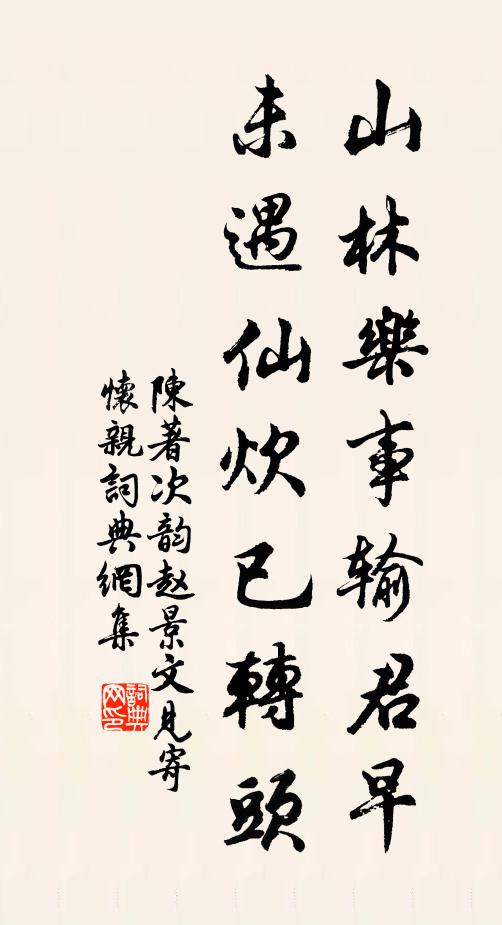 山林樂事输君早
未遇仙炊已轉頭
陳著次韵赵景文見寄
懷親詞典網集
詞典网印